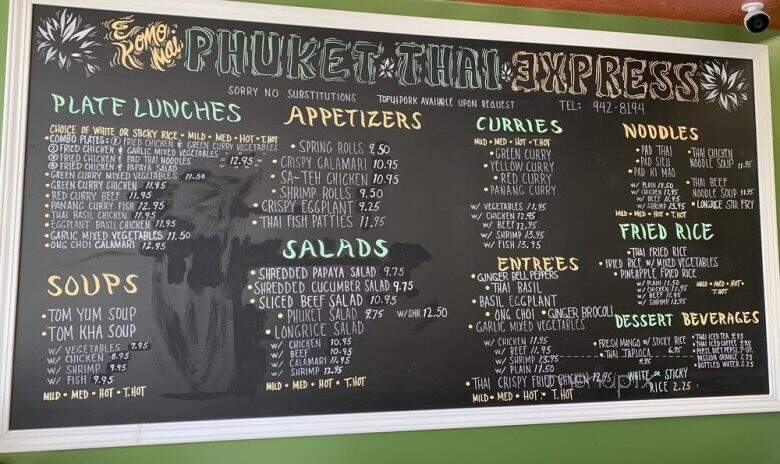 E Komo Mai
PHUKET THAI EXPRESS
SORRY NO SUBSTITUTIONS
TOFU & PORK AVAILABLE UPON REQUEST
TEL: 942-8194
PLATE LUNCHES
CHOICE OF WHITE OR STICKY RICE • MILD • MED • HOT • T.HOT
• COMBO PLATES: ① FRIED CHICKEN & GREEN CURRY VEGETABLES
② FRIED CHICKEN & GARLIC MIXED VEGETABLES
③ FRIED CHICKEN & PAD THAI NOODLES 12.95
④ FRIED CHICKEN & PAPAYA SALAD
• GREEN CURRY MIXED VEGETABLES 11.50
• GREEN CURRY CHICKEN 11.95
• RED CURRY BEEF 11.95
• PANANG CURRY FISH 12.95
• THAI BASIL CHICKEN 11.95
• EGGPLANT BASIL CHICKEN 11.95
• GARLIC MIXED VEGETABLES 11.50
• ONG CHOI CALAMARI 12.95
SOUPS
• TOM YUM SOUP
• TOM KHA SOUP
W/ VEGETABLES 7.95
W/ CHICKEN 8.95
W/ SHRIMP 9.95
W/ FISH 9.95
MILD • MED • HOT • T.HOT
APPETIZERS
• SPRING ROLLS 9.50
• CRISPY CALAMARI 10.95
• SA-TEH CHICKEN 10.95
• SHRIMP ROLLS 9.50
• CRISPY EGGPLANT 9.25
• THAI FISH PATTIES 11.95
SALADS
• SHREDDED PAPAYA SALAD 9.75
• SHREDDED CUCUMBER SALAD 9.75
• SLICED BEEF SALAD 10.95
• PHUKET SALAD 9.75 W/SHR 12.50
• LONGRICE SALAD
W/ CHICKEN 10.95
W/ BEEF 10.95
W/ CALAMARI 12.95
W/ SHRIMP 12.95
MILD • MED • HOT • T.HOT
CURRIES
MILD • MED • HOT • T.HOT
• GREEN CURRY
• YELLOW CURRY
• RED CURRY
• PANANG CURRY
W/ VEGETABLES 11.95
W/ CHICKEN 12.95
W/ BEEF 12.95
W/ SHRIMP 13.95
W/ FISH 13.95
ENTREES
• GINGER BELL PEPPERS
• THAI BASIL
• BASIL EGGPLANT
• ONG CHOI • GINGER BROCOLI
• GARLIC MIXED VEGETABLES
W/ CHICKEN 11.95
W/ BEEF 11.95
W/ SHRIMP 13.95
W/ PLAIN 11.50
• THAI CRISPY FRIED CHICKEN 12.95
MILD • MED • HOT • T.HOT
NOODLES
• PAD THAI
• PAD SIEU
• PAD KI MAO
W/ PLAIN 11.50
W/ CHICKEN 11.95
W/ BEEF 11.95
W/ SHRIMP 13.95
MILD • MED • HOT • T.HOT
• THAI CHICKEN
NOODLE SOUP 11.95
• THAI BEEF
NOODLE SOUP 11.95
• LONGRICE STIR FRY
FRIED RICE
• THAI FRIED RICE
• FRIED RICE W/ MIXED VEGETABLES
• PINEAPPLE FRIED RICE
W/ PLAIN 11.50
W/ CHICKEN 11.95
W/ BEEF 11.95
W/ SHRIMP 13.95
MILD • MED • HOT •
T.HOT
DESSERT
FRESH MANGO W/ STICKY RICE
THAI TAPIOCA 6.95
BEVERAGES
• THAI ICED TEA
• THAI ICED COFFEE
• PEPSI, DIET PEPSI, 7-UP
• PASSION ORANGE
• BOTTLED WATER
WHITE OR STICKY
RICE 2.25
menupix